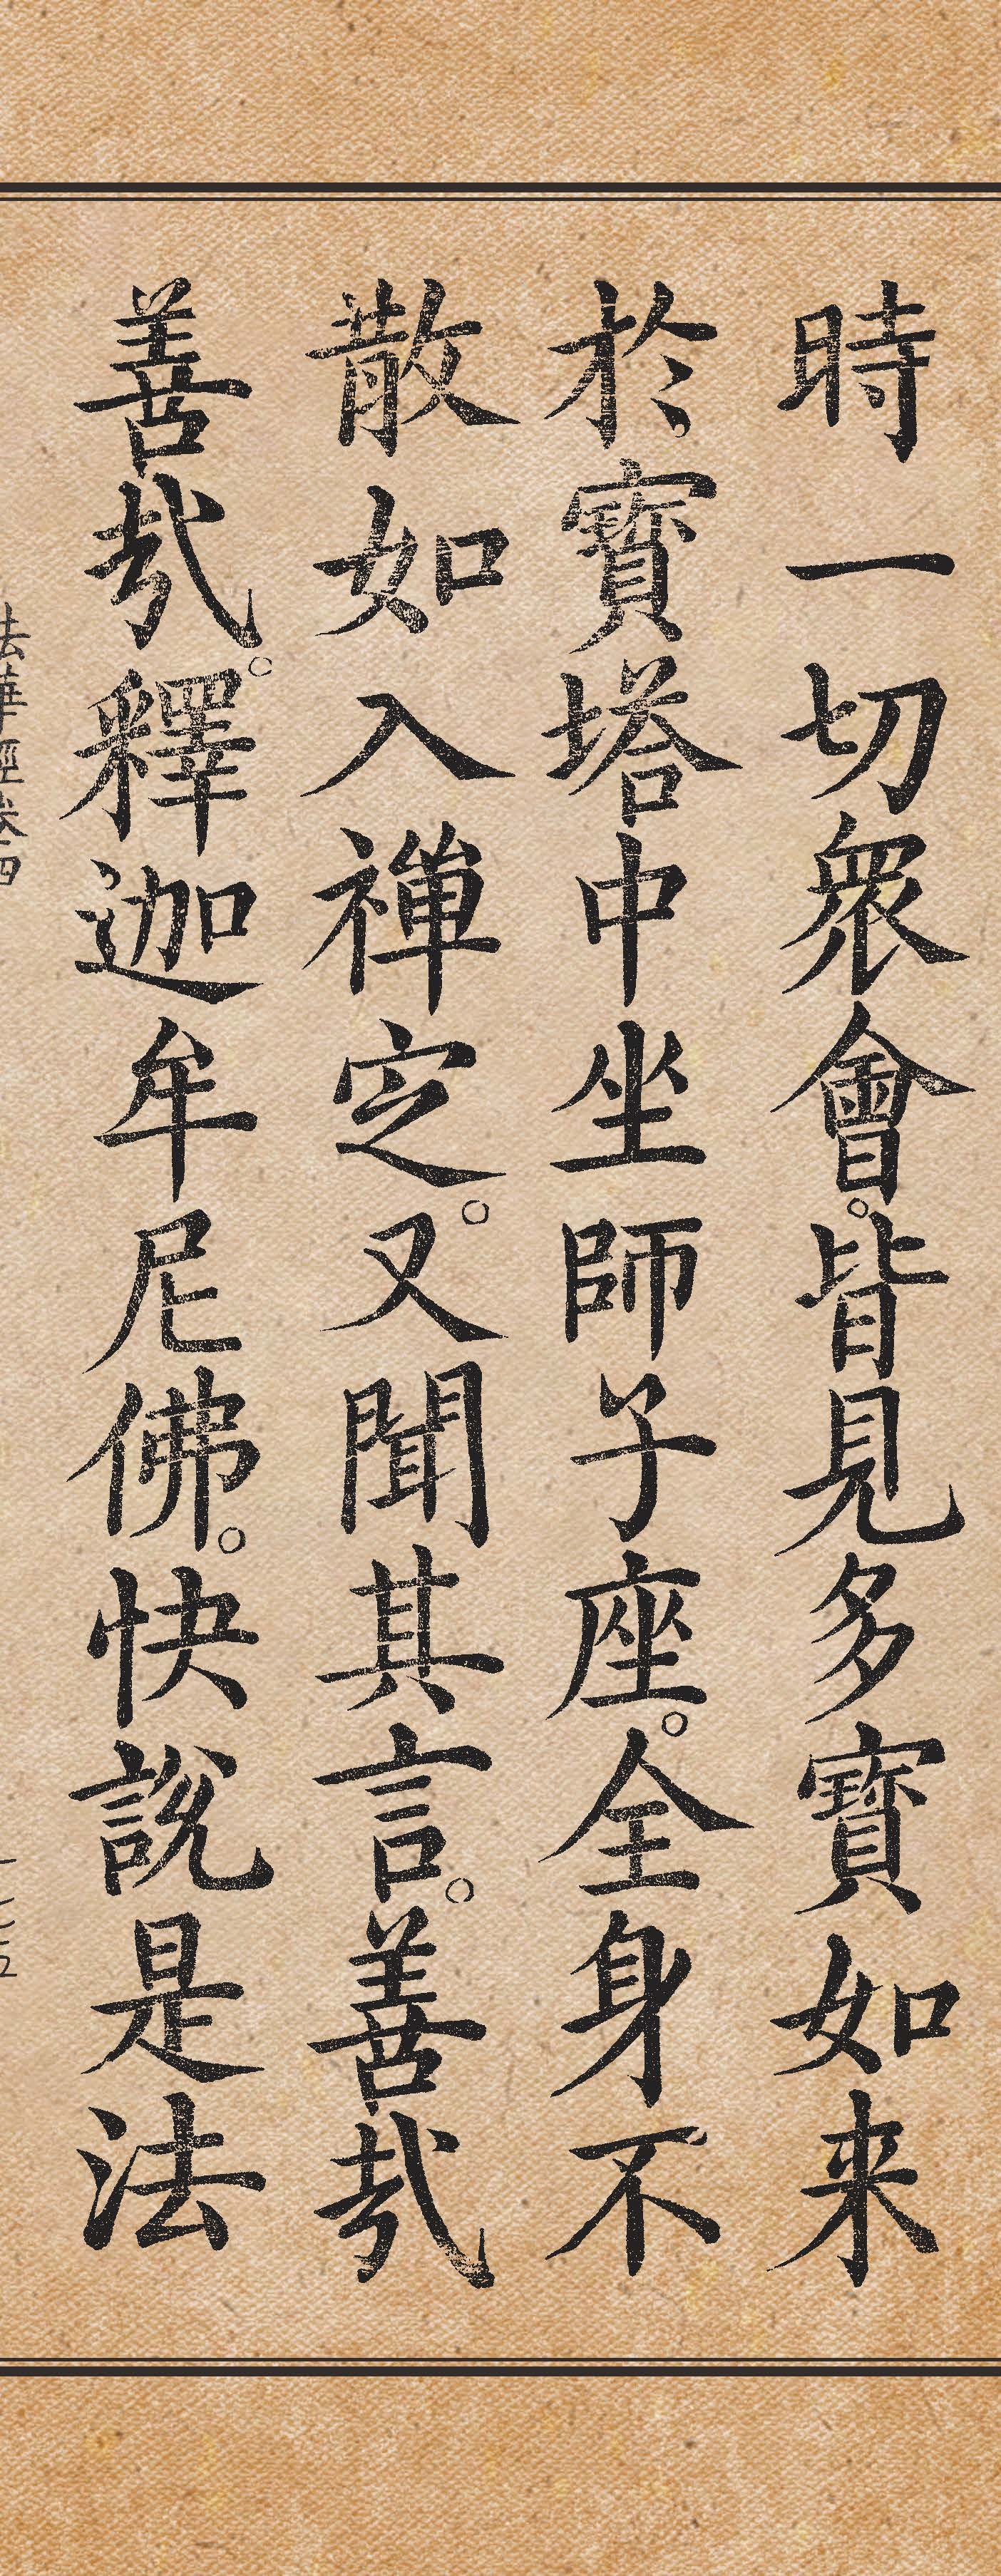 時一切眾會。皆見多寶如来
於寶塔中坐師子座。全身不
散如入禪定。又聞其言。善哉
善哉。釋迦牟尼佛。快說是法
法華經卷四